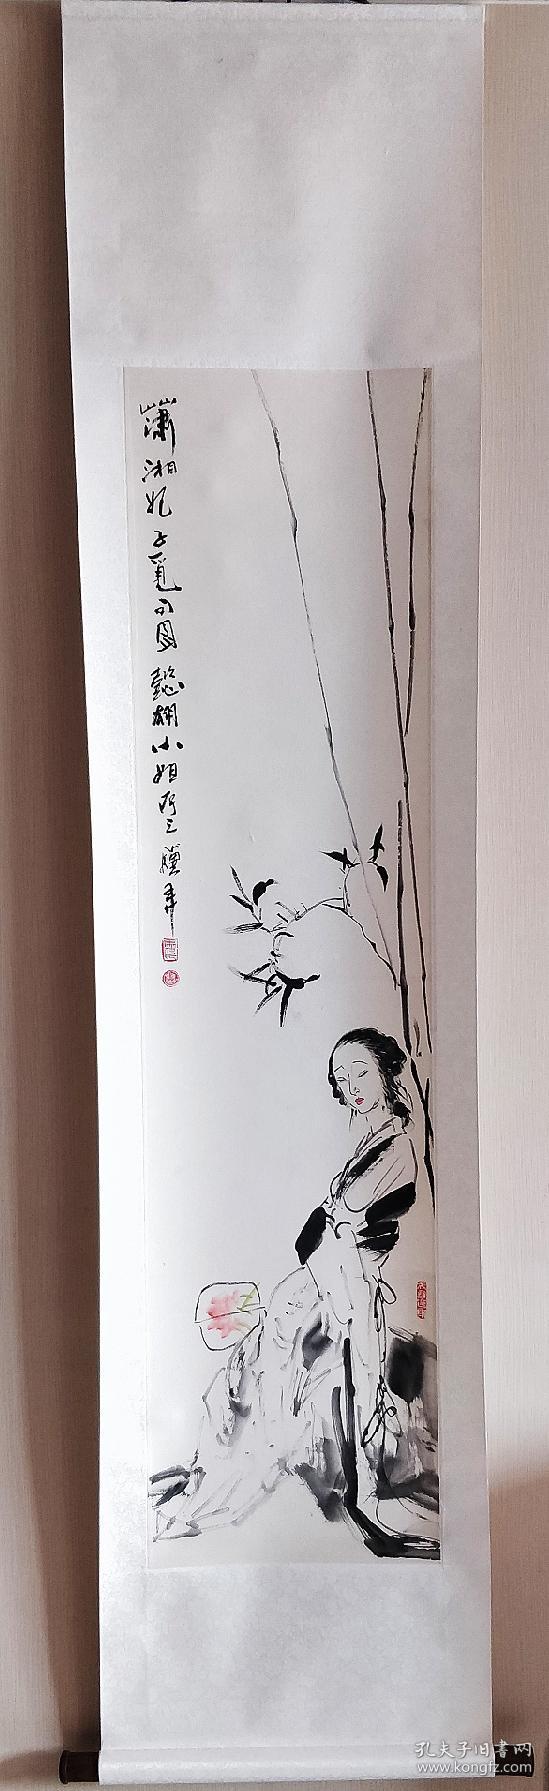 潇湘妃子觅句图懿翎小姐存之骥华
孔夫子旧书网
www.kongfz.com